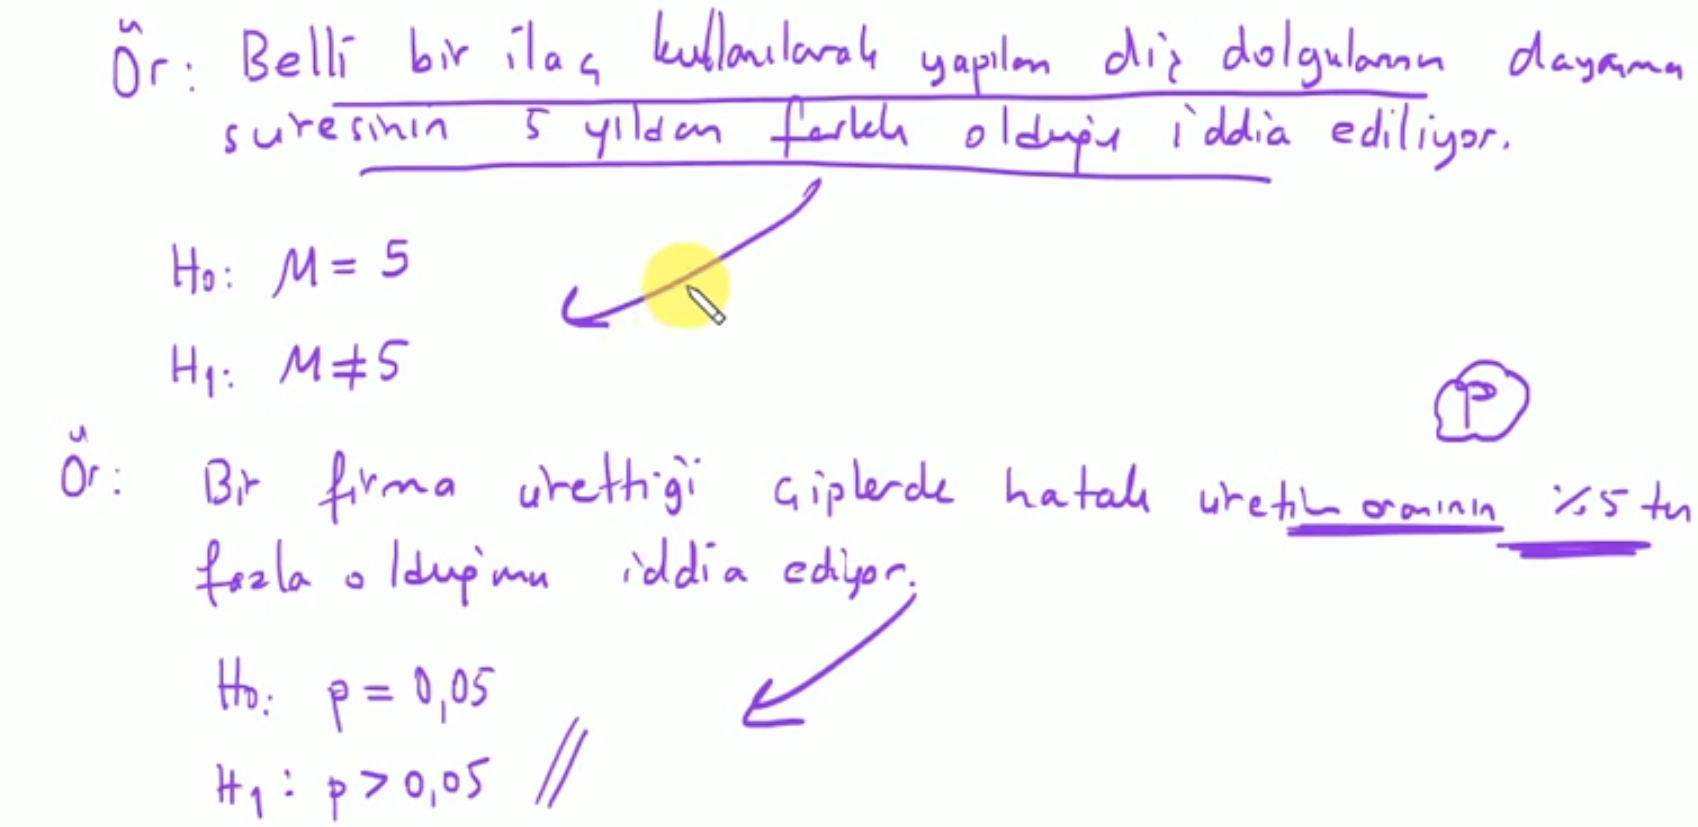 Ör: Belli bir ilaç kullanılarak yapılan diş dolgularının dayanma
süresinin 5 yıldan farklı olduğu iddia ediliyor.
H₀: μ = 5
H₁: μ ≠ 5
P
Ör: Bir firma ürettiği çiplerde hatalı üretim oranının %5 ten
fazla olduğunu iddia ediyor.
H₀: p = 0,05
H₁: p > 0,05 //